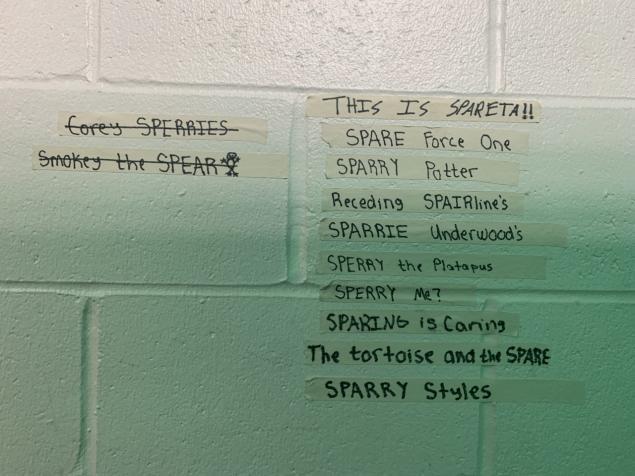 Corey SPERRIES
Smokey the SPEAR
THIS IS SPARETA!!
SPARE Force One
SPARRY Potter
Receding SPAIRline's
SPARRIE Underwood's
SPERRY the Platapus
SPERRY Me?
SPARING is Caring
The tortoise and the SPARE
SPARRY Styles